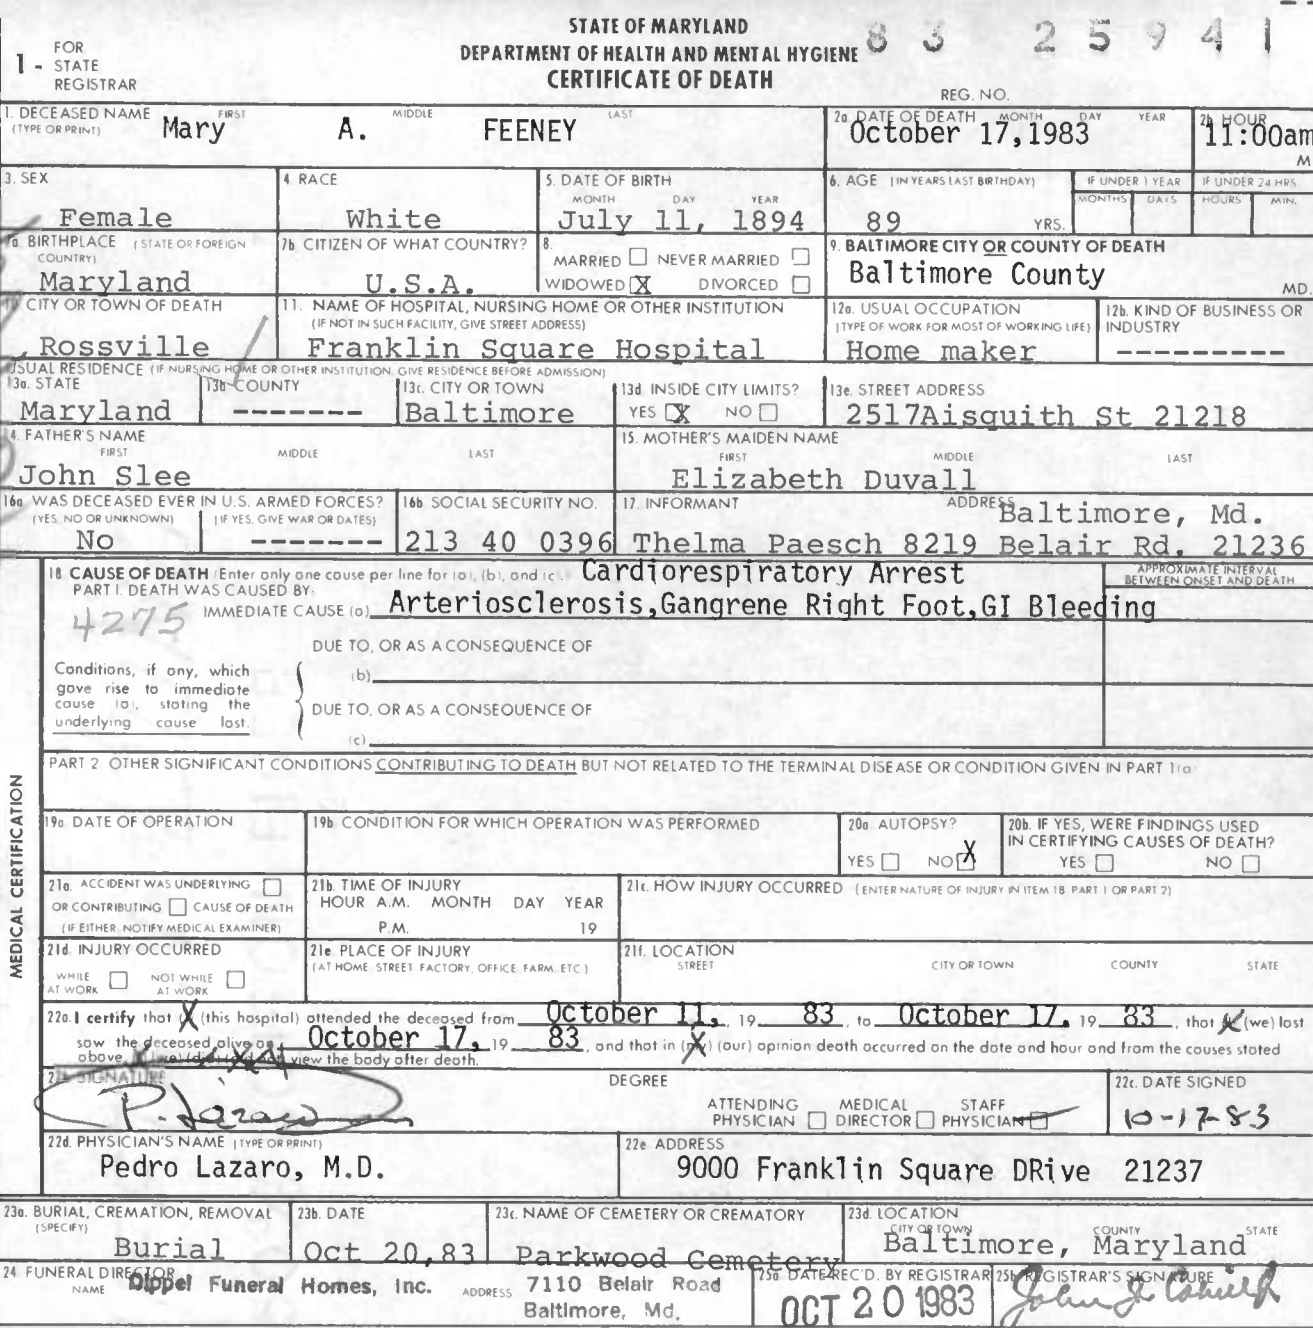 STATE OF MARYLAND
DEPARTMENT OF HEALTH AND MENTAL HYGIENE
CERTIFICATE OF DEATH
83 25941
1 - FOR STATE REGISTRAR
REG. NO.
1. DECEASED NAME (TYPE OR PRINT) FIRST MIDDLE LAST
Mary A. FEENEY
2a DATE OF DEATH MONTH DAY YEAR
October 17,1983
2b HOUR
11:00am M
3. SEX
Female
4 RACE
White
5. DATE OF BIRTH MONTH DAY YEAR
July 11, 1894
6. AGE (IN YEARS LAST BIRTHDAY)
89 YRS.
IF UNDER 1 YEAR MONTHS DAYS
IF UNDER 24 HRS HOURS MIN.
BIRTHPLACE (STATE OR FOREIGN COUNTRY)
Maryland
7b. CITIZEN OF WHAT COUNTRY?
U.S.A.
8. MARRIED NEVER MARRIED
WIDOWED X DIVORCED
9. BALTIMORE CITY OR COUNTY OF DEATH
Baltimore County MD.
CITY OR TOWN OF DEATH
Rossville
11. NAME OF HOSPITAL, NURSING HOME OR OTHER INSTITUTION
(IF NOT IN SUCH FACILITY, GIVE STREET ADDRESS)
Franklin Square Hospital
12a. USUAL OCCUPATION
(TYPE OF WORK FOR MOST OF WORKING LIFE)
Home maker
12b. KIND OF BUSINESS OR INDUSTRY
----------
USUAL RESIDENCE (IF NURSING HOME OR OTHER INSTITUTION GIVE RESIDENCE BEFORE ADMISSION)
13a. STATE
Maryland
13b COUNTY
-------
13c. CITY OR TOWN
Baltimore
13d INSIDE CITY LIMITS?
YES X NO
13e. STREET ADDRESS
2517Aisquith St 21218
4. FATHER'S NAME FIRST MIDDLE LAST
John Slee
15. MOTHER'S MAIDEN NAME FIRST MIDDLE LAST
Elizabeth Duvall
16a WAS DECEASED EVER IN U.S. ARMED FORCES?
(YES, NO OR UNKNOWN) (IF YES, GIVE WAR OR DATES)
No -------
16b SOCIAL SECURITY NO.
213 40 0396
17. INFORMANT ADDRESS
Baltimore, Md.
Thelma Paesch 8219 Belair Rd. 21236
MEDICAL CERTIFICATION
18. CAUSE OF DEATH (Enter only one cause per line for (a), (b), and (c).
PART I. DEATH WAS CAUSED BY:
Cardiorespiratory Arrest
APPROXIMATE INTERVAL BETWEEN ONSET AND DEATH
4275
IMMEDIATE CAUSE (a) Arteriosclerosis,Gangrene Right Foot,GI Bleeding
DUE TO, OR AS A CONSEQUENCE OF
(b)
Conditions, if any, which
gave rise to immediate
cause (a), stating the
underlying cause last.
DUE TO, OR AS A CONSEQUENCE OF
(c)
PART 2. OTHER SIGNIFICANT CONDITIONS CONTRIBUTING TO DEATH BUT NOT RELATED TO THE TERMINAL DISEASE OR CONDITION GIVEN IN PART 1(a)
19a DATE OF OPERATION
19b. CONDITION FOR WHICH OPERATION WAS PERFORMED
20a. AUTOPSY?
YES NO X
20b. IF YES, WERE FINDINGS USED
IN CERTIFYING CAUSES OF DEATH?
YES NO
21a. ACCIDENT WAS UNDERLYING
OR CONTRIBUTING CAUSE OF DEATH
(IF EITHER, NOTIFY MEDICAL EXAMINER)
21b. TIME OF INJURY
HOUR A.M. MONTH DAY YEAR
P.M. 19
21c. HOW INJURY OCCURRED (ENTER NATURE OF INJURY IN ITEM 18 PART 1 OR PART 2)
21d. INJURY OCCURRED
WHILE AT WORK NOT WHILE AT WORK
21e. PLACE OF INJURY
(AT HOME, STREET, FACTORY, OFFICE, FARM, ETC.)
21f. LOCATION
STREET CITY OR TOWN COUNTY STATE
22a. I certify that (X (this hospital) attended the deceased from October 11, 19 83, to October 17, 19 83, that (we) last
saw the deceased alive on October 17, 19 83, and that in (my) (our) opinion death occurred on the date and hour and from the causes stated
above. view the body after death.
SIGNATURE
P. Lazaro
DEGREE
ATTENDING PHYSICIAN MEDICAL DIRECTOR STAFF PHYSICIAN
22c. DATE SIGNED
10-17-83
22d. PHYSICIAN'S NAME (TYPE OR PRINT)
Pedro Lazaro, M.D.
22e ADDRESS
9000 Franklin Square DRive 21237
23a. BURIAL, CREMATION, REMOVAL (SPECIFY)
Burial
23b. DATE
Oct 20,83
23c. NAME OF CEMETERY OR CREMATORY
Parkwood Cemetery
23d. LOCATION CITY OR TOWN COUNTY STATE
Baltimore, Maryland
24 FUNERAL DIRECTOR NAME
Dippel Funeral Homes, Inc.
ADDRESS 7110 Belair Road
Baltimore, Md.
25a DATE REC'D. BY REGISTRAR
OCT 20 1983
25b REGISTRAR'S SIGNATURE